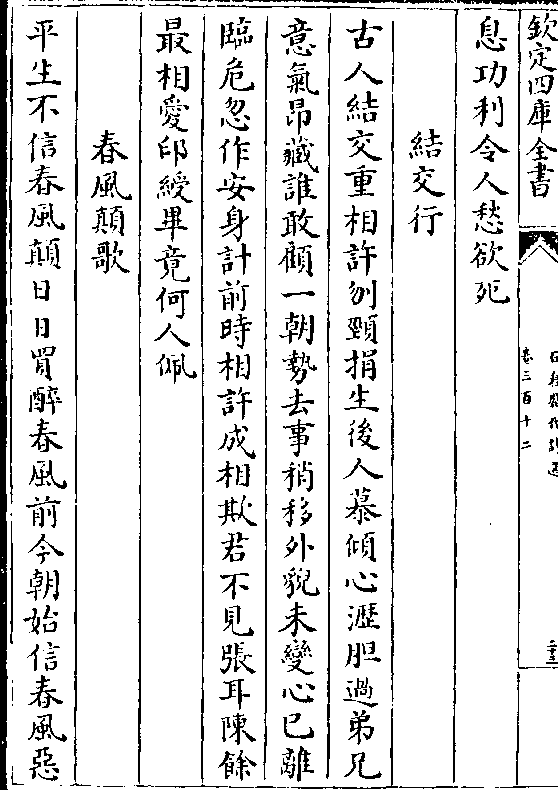 欽定四庫全書
卷三百十二
息功利令人愁欲死
結交行
古人結交重相許刎頸捐生後人慕傾心瀝胆過弟兄
意氣昂藏誰敢顧一朝勢去事稍移外貌未變心已離
臨危忽作安身計前時相許成相欺君不見張耳陳餘
最相愛印綬畢竟何人佩
春風顛歌
平生不信春風顛日日買醉春風前今朝始信春風惡